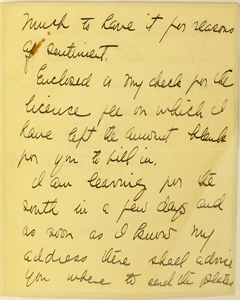 much to have it for reasons
of sentiment.
Enclosed is my check for the
license fee on which I
have left the amount blank
for you to fill in.
I am leaving for the
south in a few days and
as soon as I know my
address there shall advise
you where to send the plates